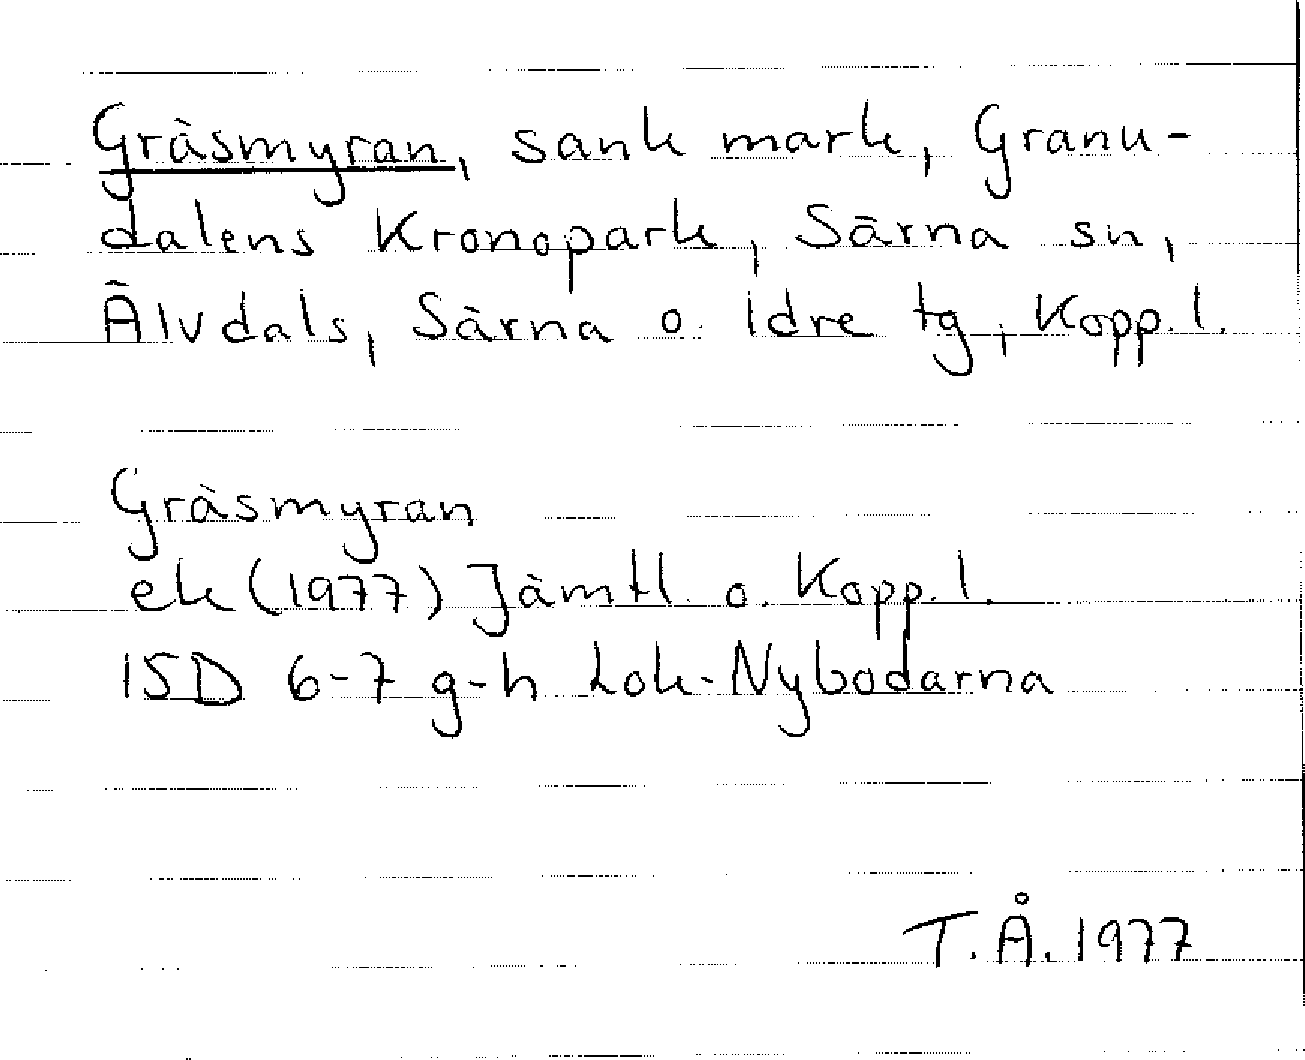 Gräsmyran, sank mark, Granu-
dalens Kronopark, Särna sn,
Älvdals, Särna o. Idre tg, Kopp. l.
Gräsmyran
ek (1977) Jämtl. o. Kopp. l.
15D 6-7 g-h Lok-Nybodarna
T.Å. 1977